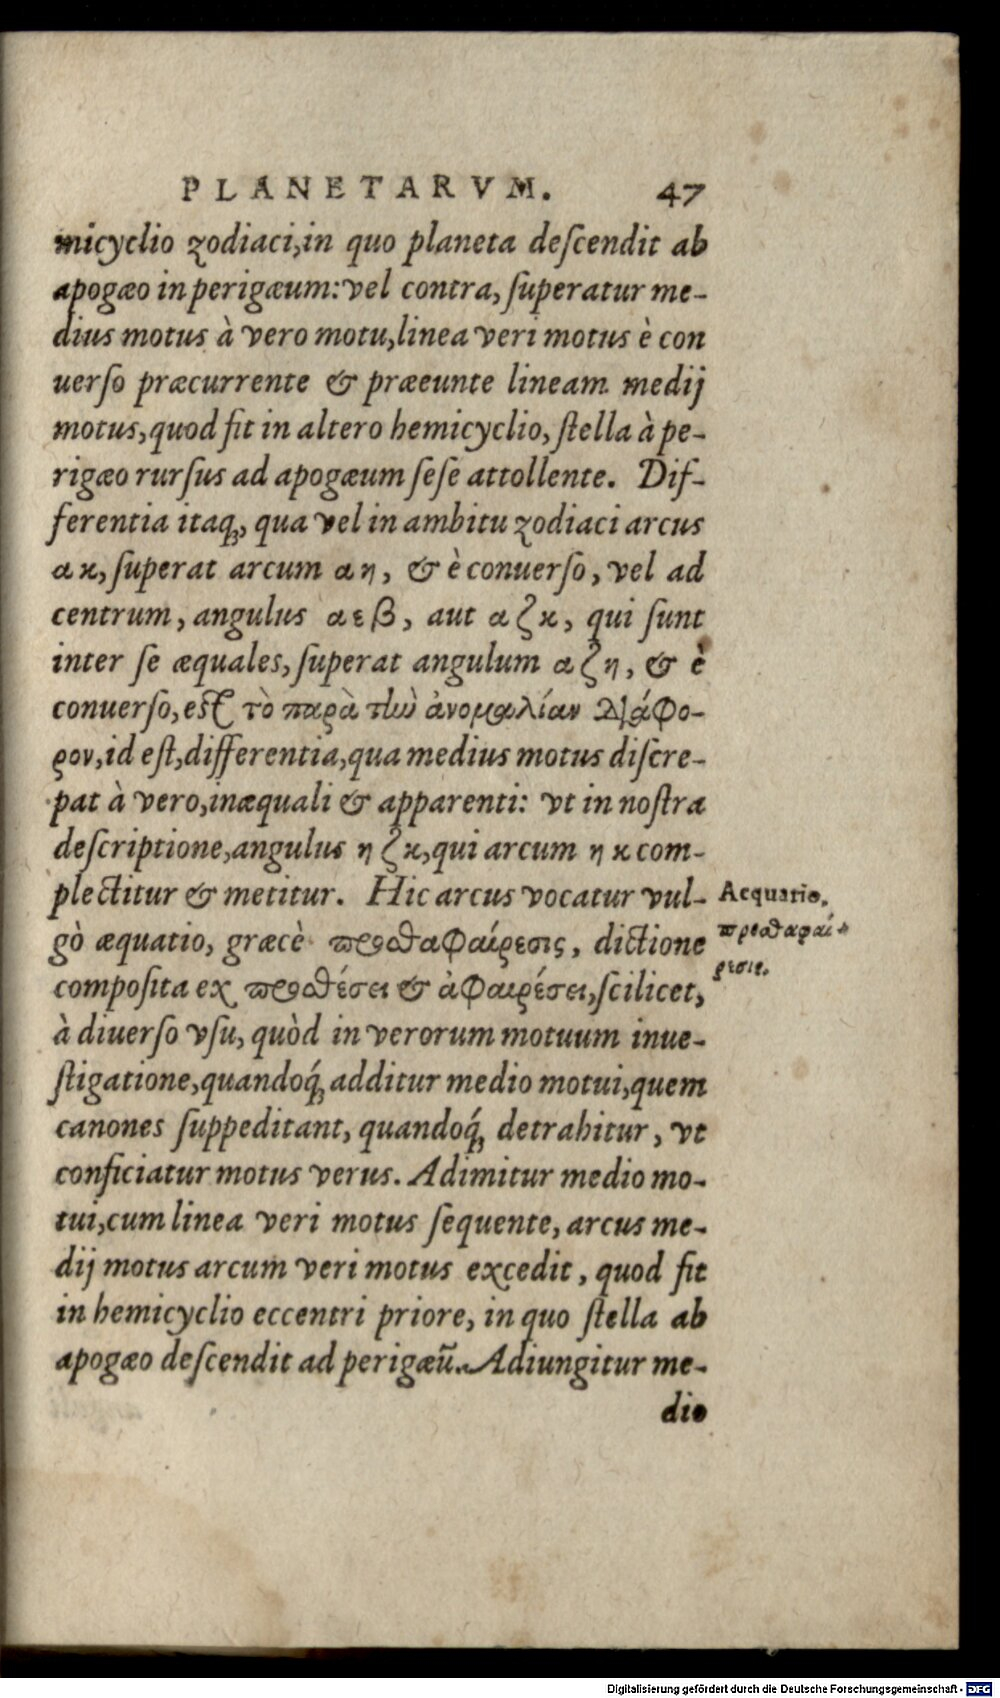 PLANETARVM. 47
micyclio zodiaci,in quo planeta deſcendit ab
apogæo in perigæum:vel contra, ſuperatur me-
dius motus à vero motu,linea veri motus è con
uerſo præcurrente & præeunte lineam medij
motus,quod fit in altero hemicyclio, ſtella à pe-
rigæo rurſus ad apogæum ſeſe attollente. Dif-
ferentia itaq́;, qua vel in ambitu zodiaci arcus
α κ, ſuperat arcum α η, & è conuerſo, vel ad
centrum, angulus α ε β, aut α ζ κ, qui ſunt
inter ſe æquales, ſuperat angulum α ζ η, & è
conuerſo,eſt τὸ παρὰ τὴν ἀνομαλίαν διάφο-
ρον,id eſt,differentia,qua medius motus diſcre-
pat à vero,inæquali & apparenti: vt in noſtra
deſcriptione,angulus η ζ κ,qui arcum η κ com-
plectitur & metitur. Hic arcus vocatur vul-
gò æquatio, græcè προσθαφαίρεσις, dictione
compoſita ex προσθέσει & ἀφαιρέσει,ſcilicet,
à diuerſo vſu, quòd in verorum motuum inue-
ſtigatione,quandoq́; additur medio motui,quem
canones ſuppeditant, quandoq́; detrahitur, vt
conficiatur motus verus. Adimitur medio mo-
tui,cum linea veri motus ſequente, arcus me-
dij motus arcum veri motus excedit, quod fit
in hemicyclio eccentri priore, in quo ſtella ab
apogæo deſcendit ad perigæũ. Adiungitur me-
dio
Aequatio.
προσθαφαί-
ρεσις.
Digitalisierung gefördert durch die Deutsche Forschungsgemeinschaft - DFG